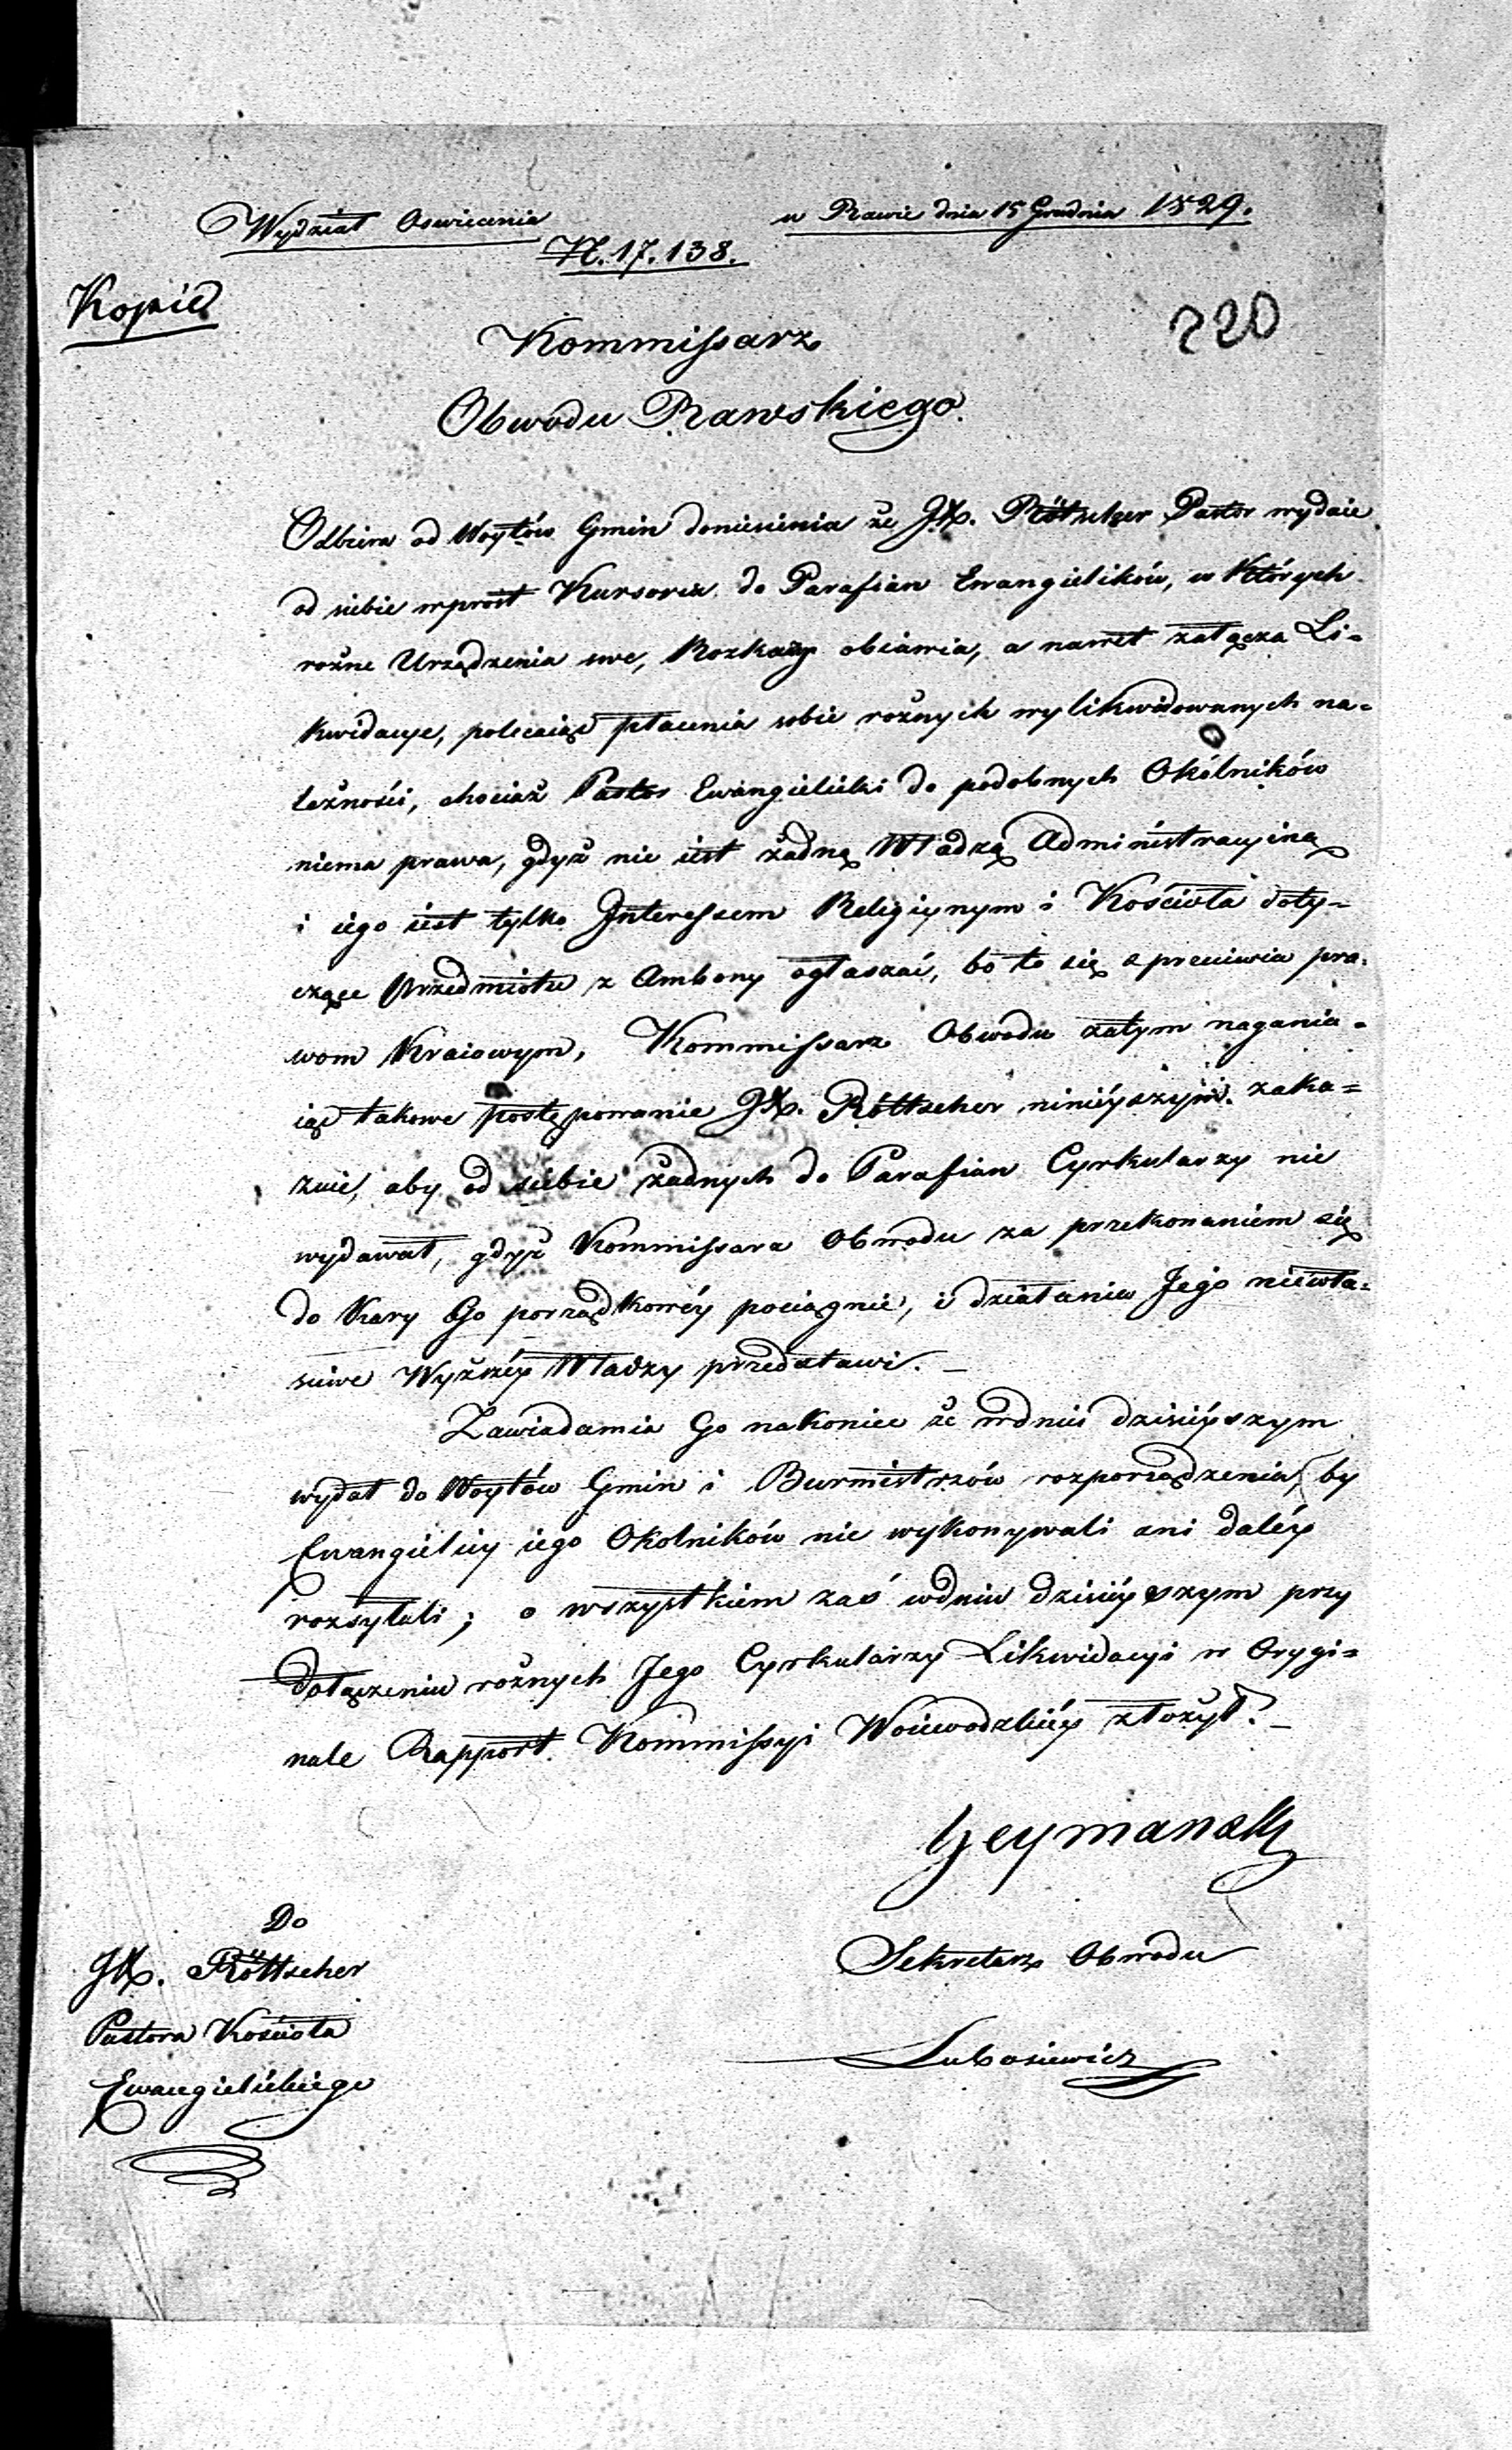 Wydział Oswiecenia
w Rawie dnia 15 Grudnia 1829.
N. 17.138.
Kopia
220
Kommissarz
Obwodu Rawskiego
Odbiera od Woytów Gmin doniesienia że JX. Röttscher Pastor wydaie
od siebie wprost Kursoria do Parafian Ewangielików, w Których
rożne Urządzenia swe, Rozkazy obiawia, a nawet załącza Li=
kwidacye, polecaiąc płacenia sobie rożnych wylikwidowanych na=
leżności, chociaż Pastor Ewangielicki do podobnych Okólników
niema prawa, gdyż nie iest żadną Władzą Administracyiną
i iego iest tylko Interessem Religiynym i Kościoła doty=
czące Przedmiota z Ambony ogłaszać, bo to się sprzeciwia pra=
wom Kraiowym, Kommissarz Obwodu zatym nagania=
iąc takowe postępowanie JX. Röttscher ninieyszym zaka=
zuie, aby od siebie żadnych do Parafian Cyrkularzy nie
wydawał, gdyż Kommissarz Obwodu za przekonaniem się
do Kary Go porządkowéy pociągnie, i działanie Jego niewła=
sciwe Wyższéy Władzy przedstawi. —
Zawiadamia Go nakoniec że wdniu dzisieyszym
wydał do Woytów Gmin i Burmistrzów rozporządzenia, by
Ewangielicy iego Okolników nie wykonywali ani daléy
rozsyłali; o wszystkiem zaś wdniu dzisieyszym przy
dołączeniu rożnych Jego Cyrkularzy Likwidacyi w Orygi=
nale Rapport Kommissyi Woiewodzkiéy złożył. —
Do
JX. Röttscher
Pastora Kościoła
Ewangielickiego
Sekretarz Obwodu